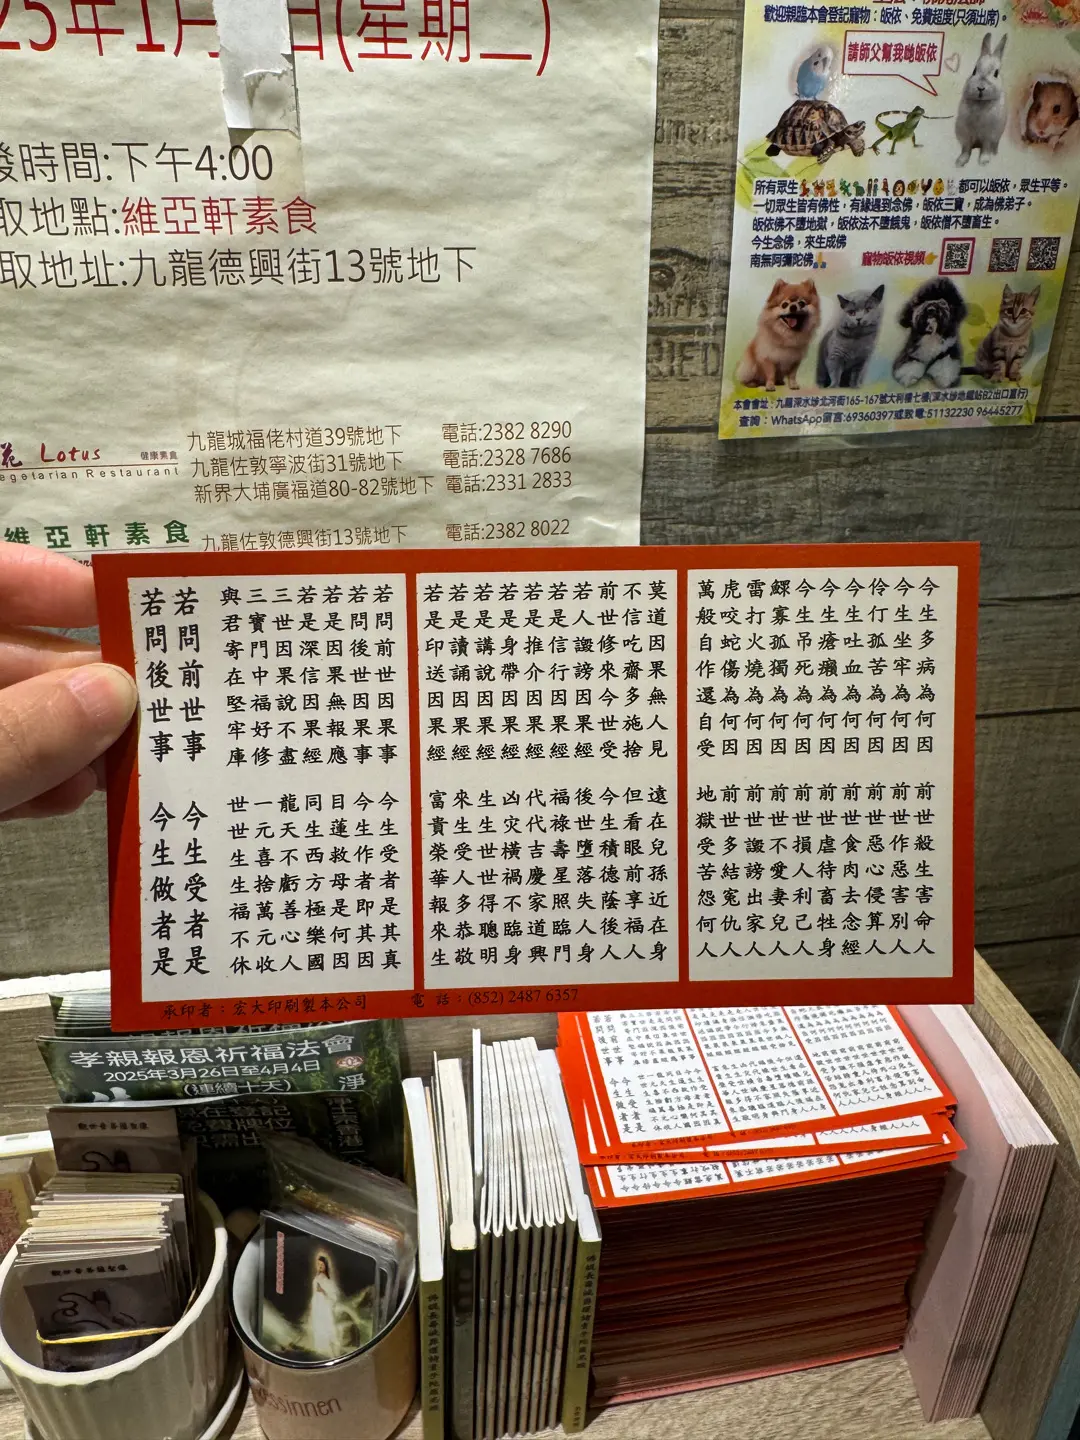 25年1月
日(星期二)
發時間:下午4:00
取地點:維亞軒素食
取地址:九龍德興街13號地下
花 Lotus 健康素食
egetarian Restaurant
九龍城福佬村道39號地下 電話:2382 8290
九龍佐敦寧波街31號地下 電話:2328 7686
新界大埔廣福道80-82號地下 電話:2331 2833
維亞軒素食 九龍佐敦德興街13號地下 電話:2382 8022
歡迎親臨本會登記寵物：皈依、免費超度(只須出席)。
請師父幫我哋皈依
所有眾生都可以皈依，眾生平等。
一切眾生皆有佛性，有緣遇到念佛，皈依三寶，成為佛弟子。
皈依佛不墮地獄，皈依法不墮餓鬼，皈依僧不墮畜生。
今生念佛，來生成佛
南無阿彌陀佛 寵物皈依視頻
本會會址：九龍深水埗北河街165-167號大利樓七樓(深水埗地鐵站B2出口直行)
查詢：WhatsApp留言:69360397或致電:51132230 96445277
今生多病為何因 前世殺生害命人
今生坐牢為何因 前世作惡害別人
伶仃孤苦為何因 前世惡心侵算人
今生吐血為何因 前世食肉去念經
今生瘡癩為何因 前世虐待畜牲身
今生吊死為何因 前世損人利己人
鰥寡孤獨為何因 前世不愛妻兒人
雷打火燒為何因 前世譭謗出家人
虎咬蛇傷為何因 前世多結冤仇人
萬般自作還自受 地獄受苦怨何人
莫道因果無人見 遠在兒孫近在身
不信吃齋多施捨 但看眼前享福人
前世修來今世受 今生積德蔭後人
若人譭謗因果經 後世墮落失人身
若是信行因果經 福祿壽星照臨門
若是推介因果經 代代吉慶家道興
若是身帶因果經 凶灾橫禍不臨身
若是講說因果經 生生世世得聰明
若是讀誦因果經 來生受人多恭敬
若是印送因果經 富貴榮華報來生
若問前世因果事 今生受者是其真
若問後世因果事 今生作者即其因
若是因果無報應 目蓮救母是何因
若是深信因果經 同生西方極樂國
三世因果說不盡 龍天不虧善心人
三寶門中福好修 一元喜捨萬元收
與君寄在堅牢庫 世世生生福不休
若問前世事 今生受者是
若問後世事 今生做者是
承印者：宏大印刷製本公司 電話：(852) 2487 6357
孝親報恩祈福法會
2025年3月26日至4月4日
(連續十天)
觀世音菩薩聖像
觀世音菩薩聖像